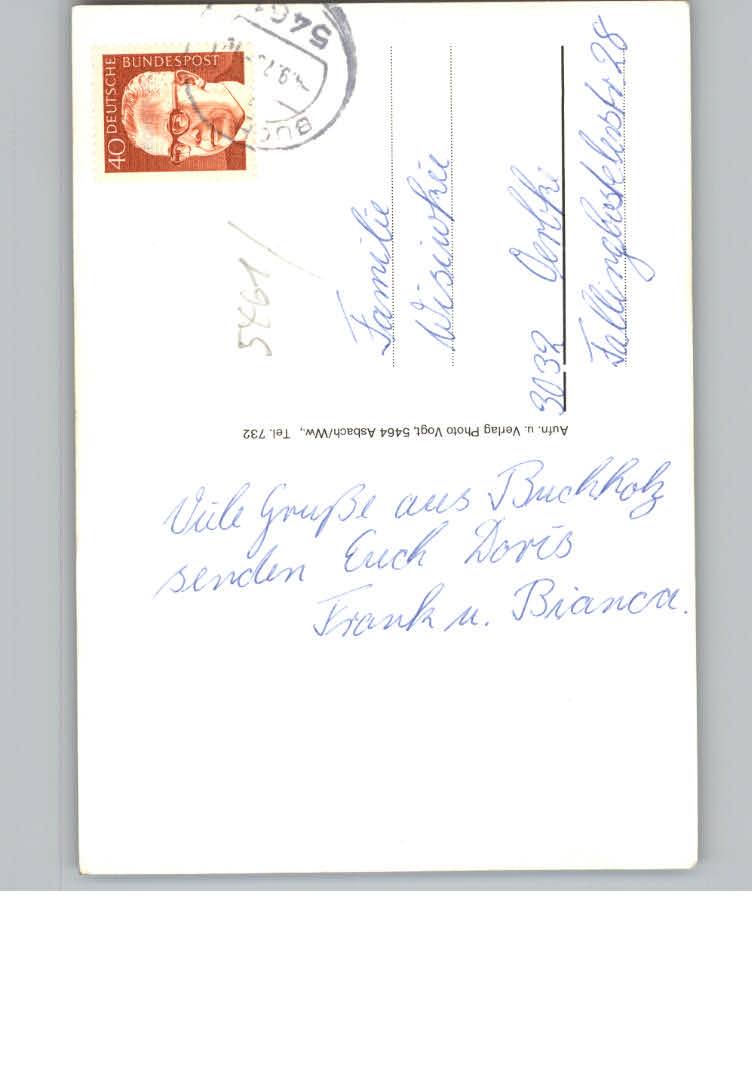 DEUTSCHE BUNDESPOST
40
5461
BUCH
5461/
Familie
3032 Oerbke
Fallingbostelerstr. 28
Aufn. u. Verlag Photo Vogt, 5464 Asbach/Ww., Tel. 732
Viele Grüße aus Buchholz
senden Euch Doris
Frank u. Bianca.